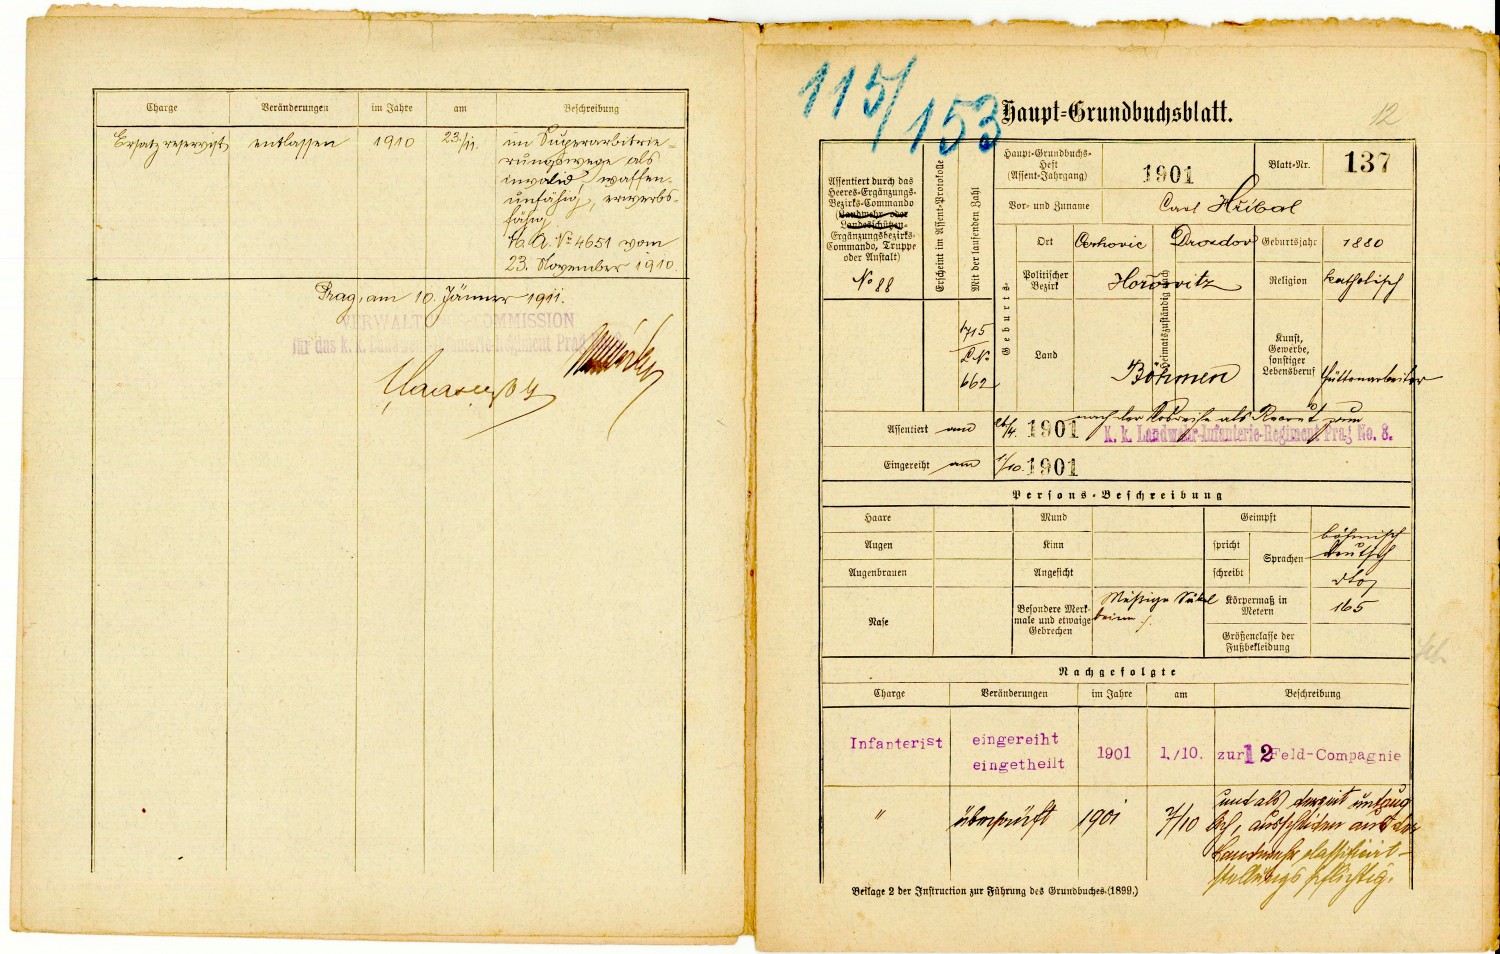 Charge Veränderungen im Jahre am Beschreibung
Ersatzreservist entlassen 1910 23./11. im Superarbitrie-
rungswege als
invalid, waffen-
unfähig, erwerbs-
fähig
A. No 4651 vom
23. November 1910.
Prag, am 10. Jänner 1911.
VERWALTUNGSCOMMISSION
für das k. k. Landwehr-Infanterie-Regiment Prag
115/153
Haupt-Grundbuchsblatt.
12
Assentiert durch das
Heeres-Ergänzungs-
Bezirks-Commando
(Landwehr- oder
Landesschützen-
Ergänzungsbezirks-
Commando, Truppe
oder Anstalt)
No 88
Erscheint im Assent-Protokolle
Mit der laufenden Zahl
715
L No
662
Haupt-Grundbuchs-
Heft
(Assent-Jahrgang)
1901
Blatt-Nr.
137
Vor- und Zuname
Carl Hřibal
Geburts-
Ort
Cerhovic
Heimatszuständig
Drozdov
Geburtsjahr
1880
Politischer
Bezirk
Hořovitz
Religion
katholisch
Land
Böhmen
Kunst,
Gewerbe,
sonstiger
Lebensberuf
Hüttenarbeiter
Assentiert am
1901
nach der Losreihe als Recrut zum
K. k. Landwehr-Infanterie-Regiment Prag No. 8.
Eingereiht am
1/10. 1901
Persons-Beschreibung
Haare Mund Geimpft
Augen Kinn spricht Sprachen böhmisch
deutsch
Augenbrauen Angesicht schreibt dto
Nase
Besondere Merk-
male und etwaige
Gebrechen
Mäßige Säbel
beine ./.
Körpermaß in
Metern
165
Größenclasse der
Fußbekleidung
Nachgefolgte
Charge Veränderungen im Jahre am Beschreibung
Infanterist eingereiht
eingetheilt 1901 1./10. zur 12 Feld-Compagnie
" überprüft 1901 7/10 und als derzeit untaug
lich, ausscheiden aus der
Landwehr classificirt -
stellungspflichtig.
Beilage 2 der Instruction zur Führung des Grundbuches (1899.)